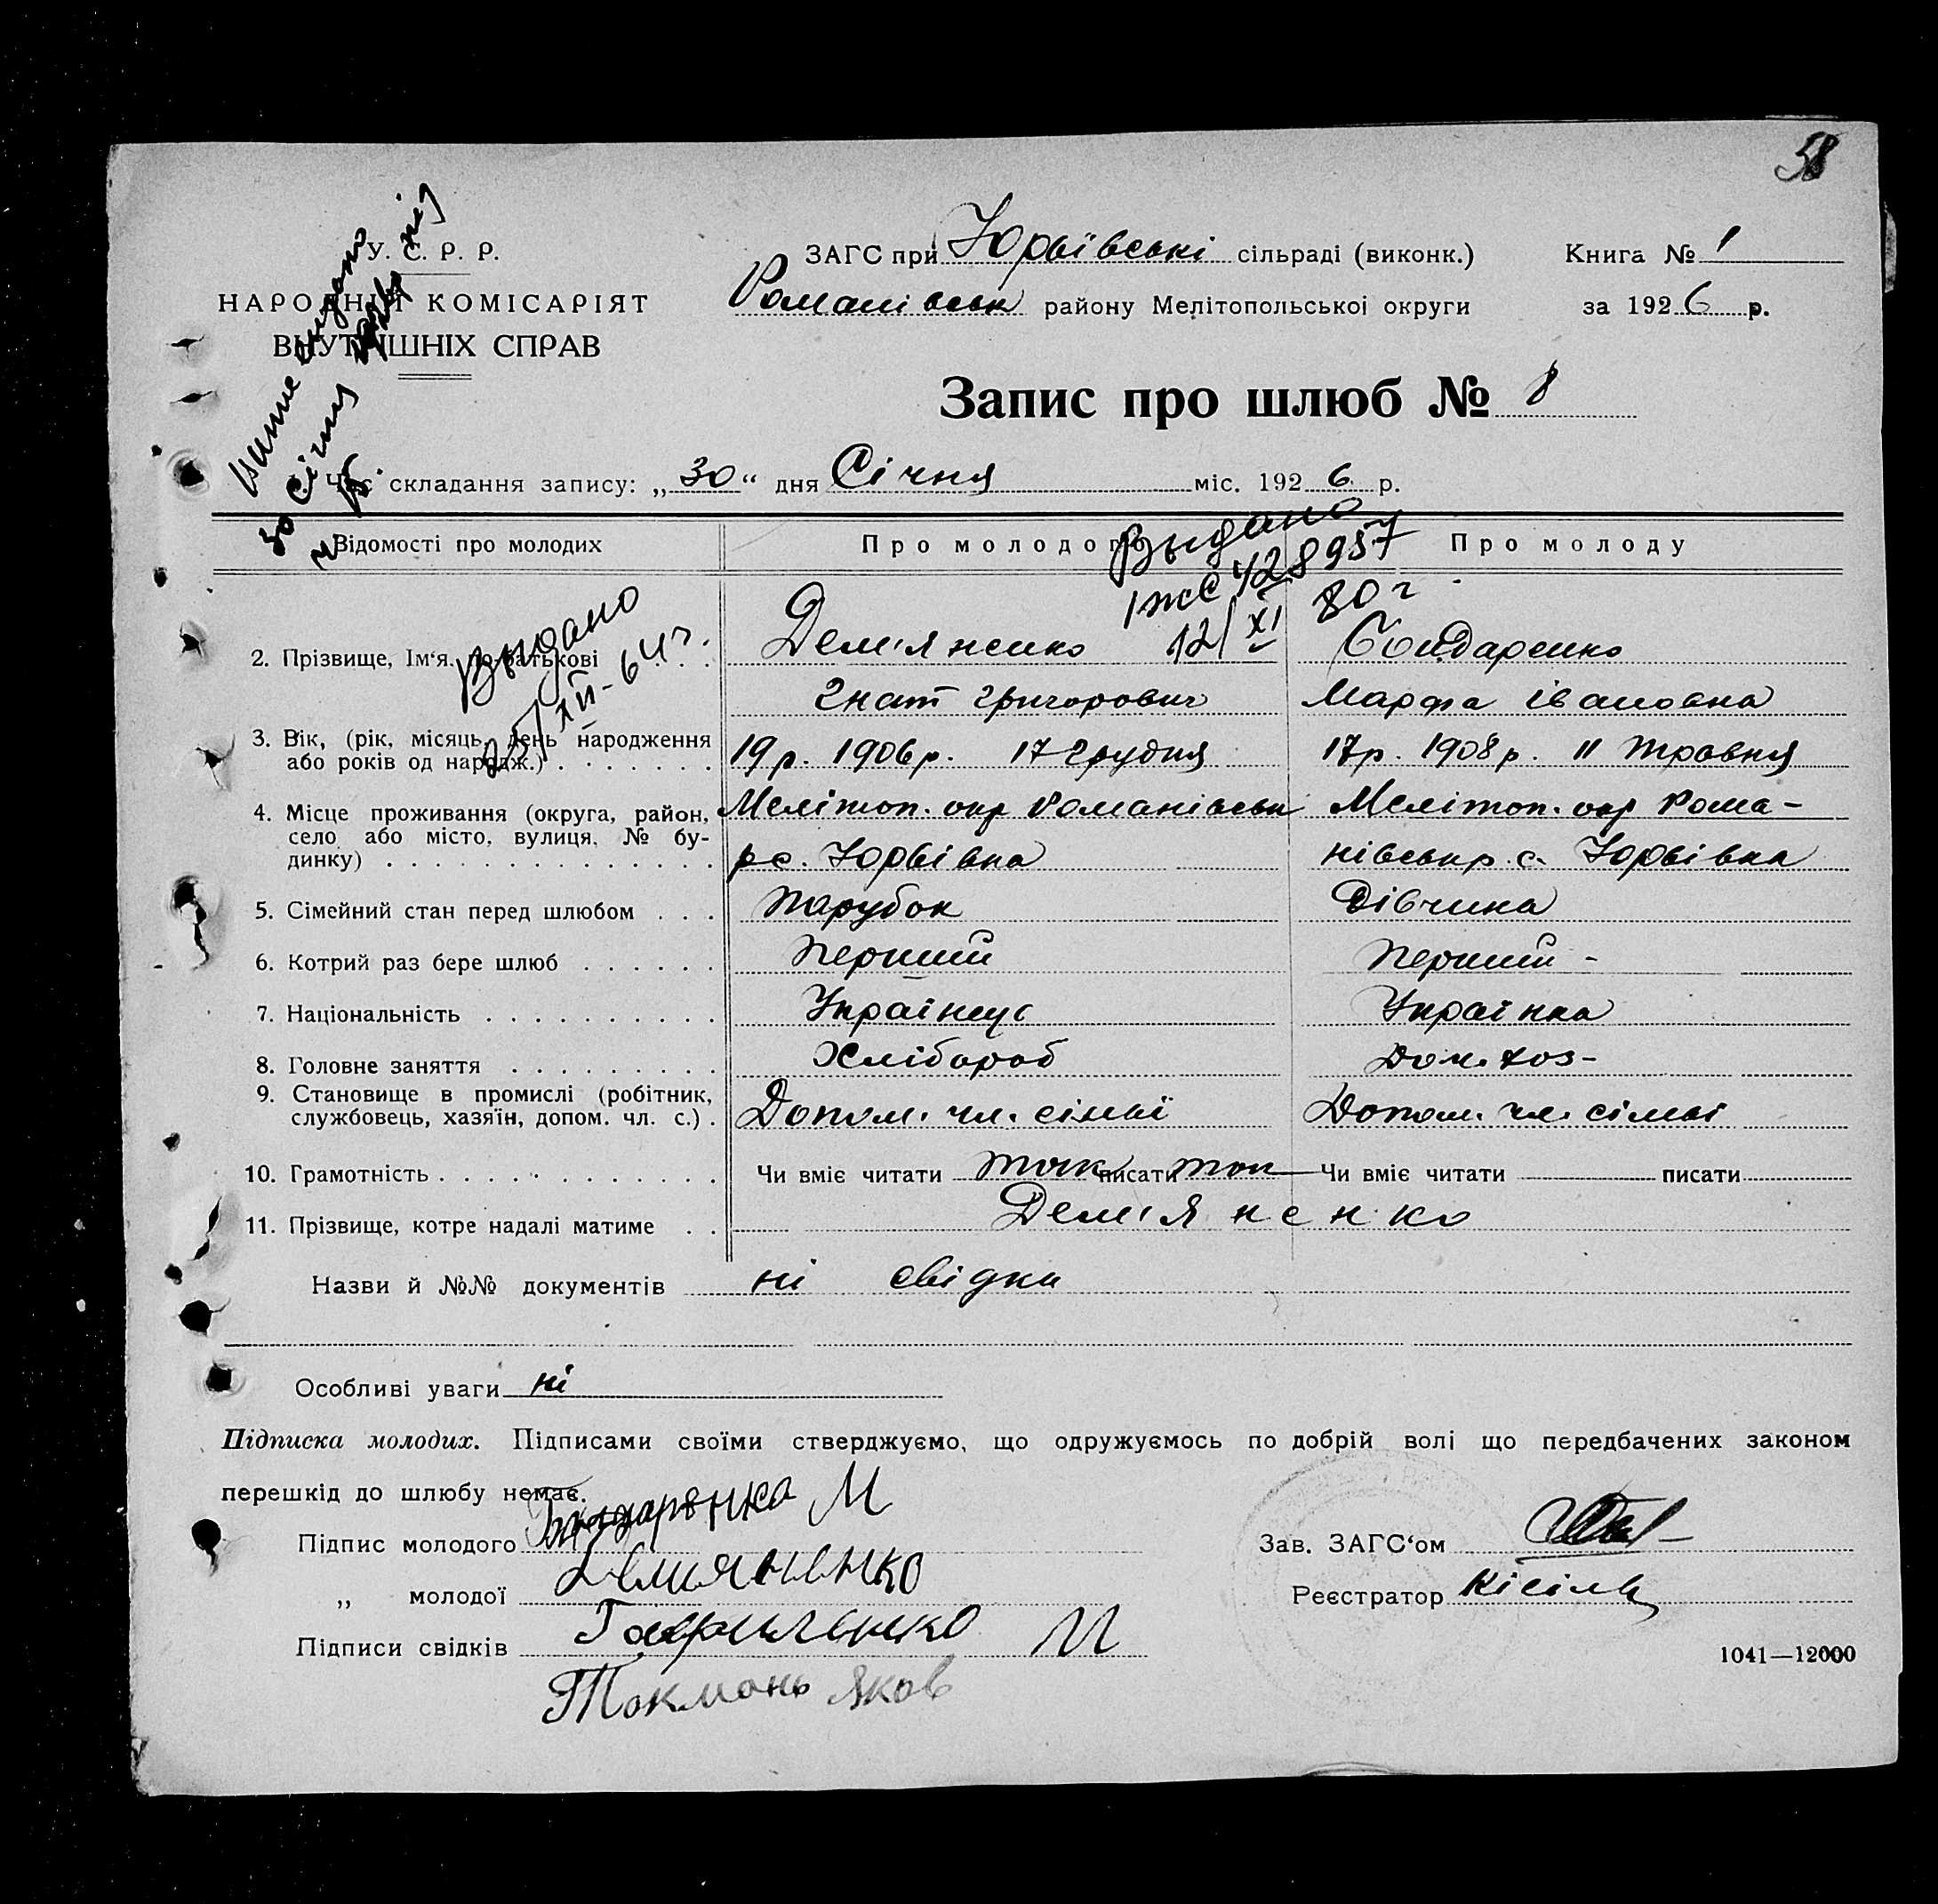 58
У. С. Р. Р.
НАРОДНІЙ КОМІСАРІЯТ
ВНУТРІШНІХ СПРАВ
ЗАГС при Юрьївські сільраді (виконк.)
Книга № 1
Романівськ району Мелітопольської округи
за 1926 р.
Запис про шлюб № 8
видано
30 Січня
Час складання запису: „30“ дня Січня міс. 1926 р.
Відомості про молодих
Про молодого
Про молоду
Выдано
1 ЖС 428957
12/XI 80 г
Выдано
25/XII-64 г.
2. Прізвище, Ім‘я, по-батькові . . .
Дем‘яненко
Бондаренко
Гнат Григорович
Марфа Івановна
3. Вік, (рік, місяць, день народження
або років од народж.) . . . . . . .
19 р. 1906 р. 17 Грудня
17 р. 1908 р. 11 Травня
4. Місце проживання (округа, район,
село або місто, вулиця, № бу-
динку) . . . . . . . . . . . . . .
Мелітоп. окр Романівськ
р с. Юрьівка
Мелітоп. окр Рома-
нівськ р. с. Юрьівка
5. Сімейний стан перед шлюбом . . .
Парубок
Дівчина
6. Котрий раз бере шлюб . . . . . .
Перший
Перший -
7. Національність . . . . . . . . . .
Українець
Українка
8. Головне заняття . . . . . . . . .
Хлібороб
Дом. хоз-
9. Становище в промислі (робітник,
службовець, хазяїн, допом. чл. с.) .
Допом. чл. сімьї
Допом. чл. сімьі
10. Грамотність . . . . . . . . . . . .
Чи вміє читати так писати так
Чи вміє читати — писати
11. Прізвище, котре надалі матиме . .
Дем‘яненко
Назви й №№ документів ні свідки
Особливі уваги ні
Підписка молодих. Підписами своїми стверджуємо, що одружуємось по добрій волі що передбачених законом
перешкід до шлюбу немає.
Підпис молодого Бондарєнка М
„ молодої Демяненко
Підписи свідків Гаврильенко М
Токмань Яков
Зав. ЗАГС‘ом
Реєстратор Кісіль
1041—12000